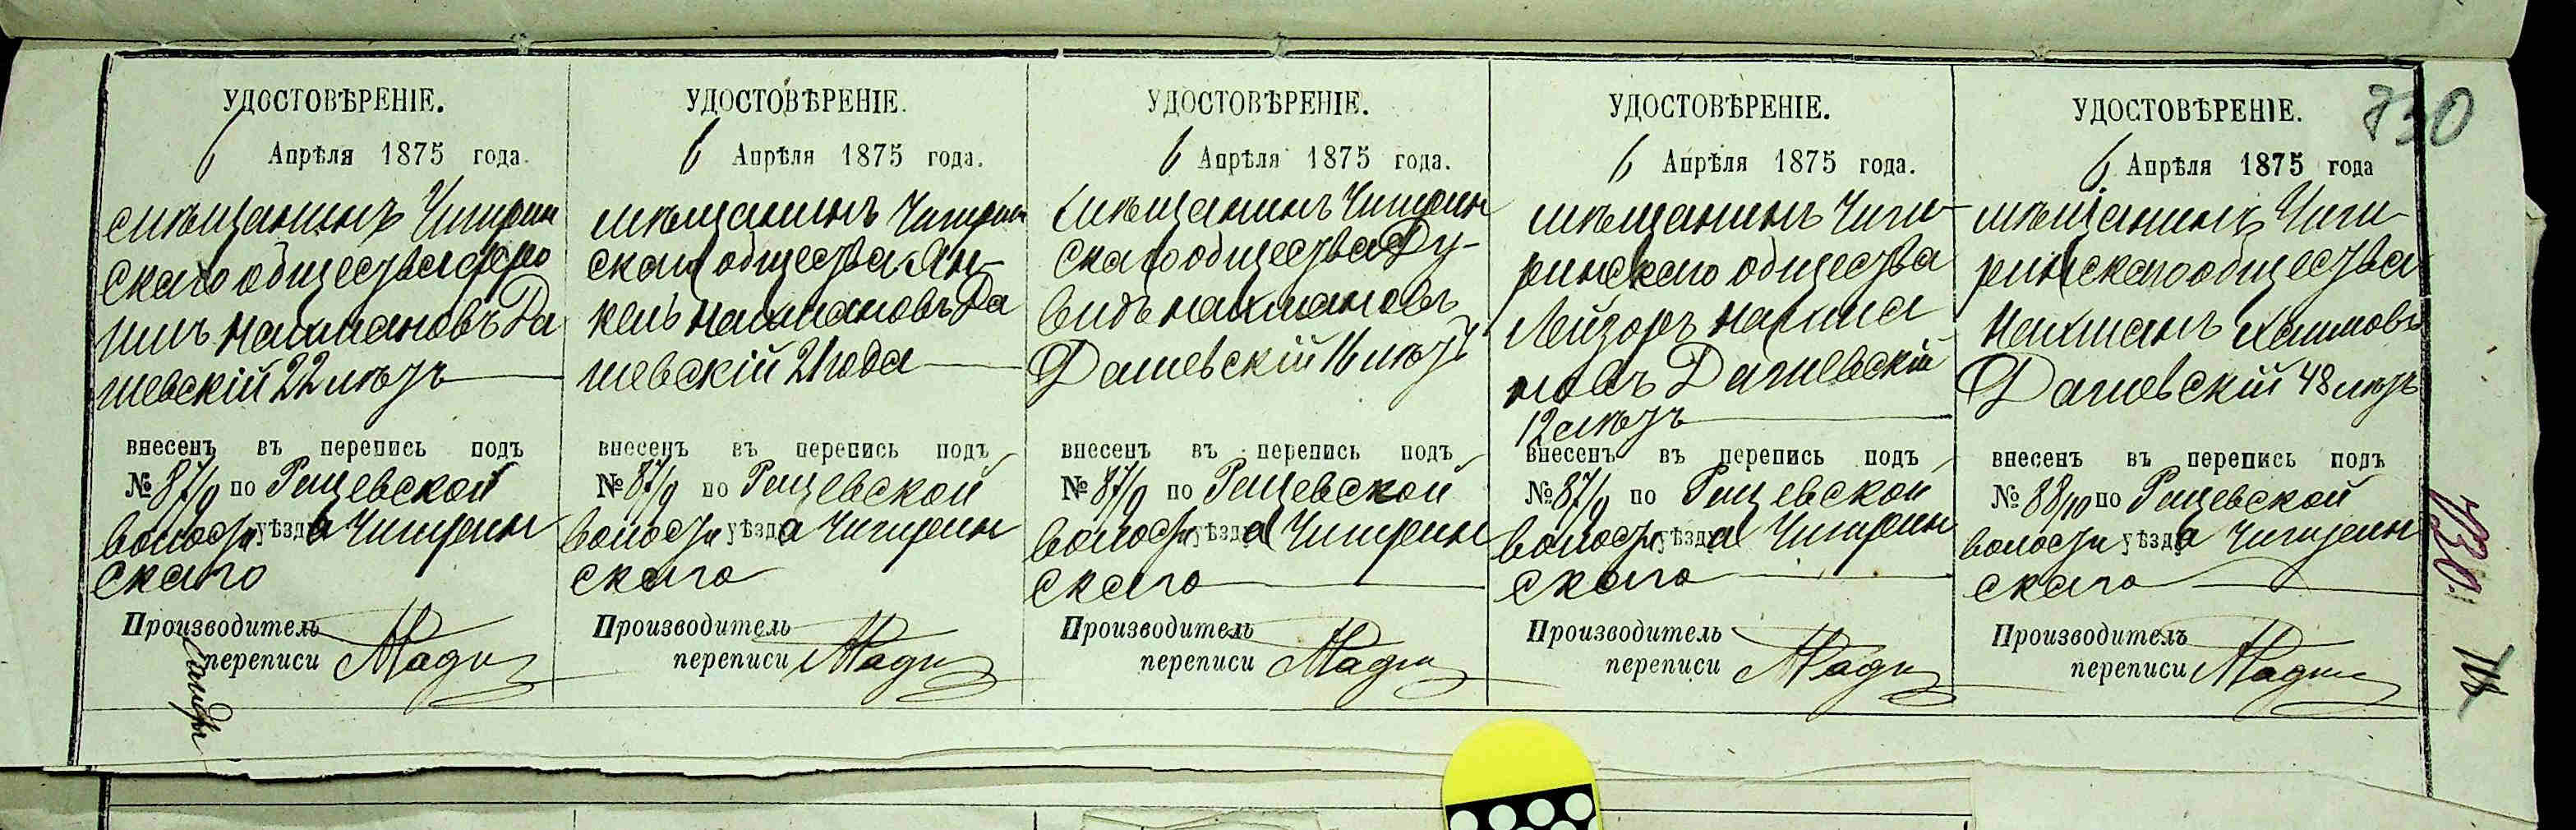 УДОСТОВѢРЕНІЕ.
6 Апрѣля 1875 года.
мѣщанинъ Чигирин
скаго общества Фро
имъ Нахмановъ Да
шевскій 22 лѣтъ
внесенъ въ перепись подъ
№ 87/9 по
волости уѣзда Чигирин
скаго
Производитель
переписи
УДОСТОВѢРЕНІЕ.
6 Апрѣля 1875 года.
мѣщанинъ Чигирин
скаго общества Ян-
кель Нахмановъ Да
шевскій 21 года
внесенъ въ перепись подъ
№ 87/9 по
волости уѣзда Чигирин
скаго
Производитель
переписи
УДОСТОВѢРЕНІЕ.
6 Апрѣля 1875 года.
мѣщанинъ Чигирин
скаго общества Ду-
видъ Нахмановъ
Дашевскій 16 лѣтъ
внесенъ въ перепись подъ
№ 87/9 по
волости уѣзда Чигирин
скаго
Производитель
переписи
УДОСТОВѢРЕНІЕ.
6 Апрѣля 1875 года.
мѣщанинъ Чиги-
ринскаго общества
Лейзоръ Нахма
новъ Дашевскій
12 лѣтъ
внесенъ въ перепись подъ
№ 87/9 по
волости уѣзда Чигирин
скаго
Производитель
переписи
УДОСТОВѢРЕНІЕ.
6 Апрѣля 1875 года
мѣщанинъ Чиги-
ринскаго общества
Нахманъ Хаимовъ
Дашевскій 48 лѣтъ
внесенъ въ перепись подъ
№ 88/10 по
волости уѣзда Чигирин
скаго
Производитель
переписи
730
730.